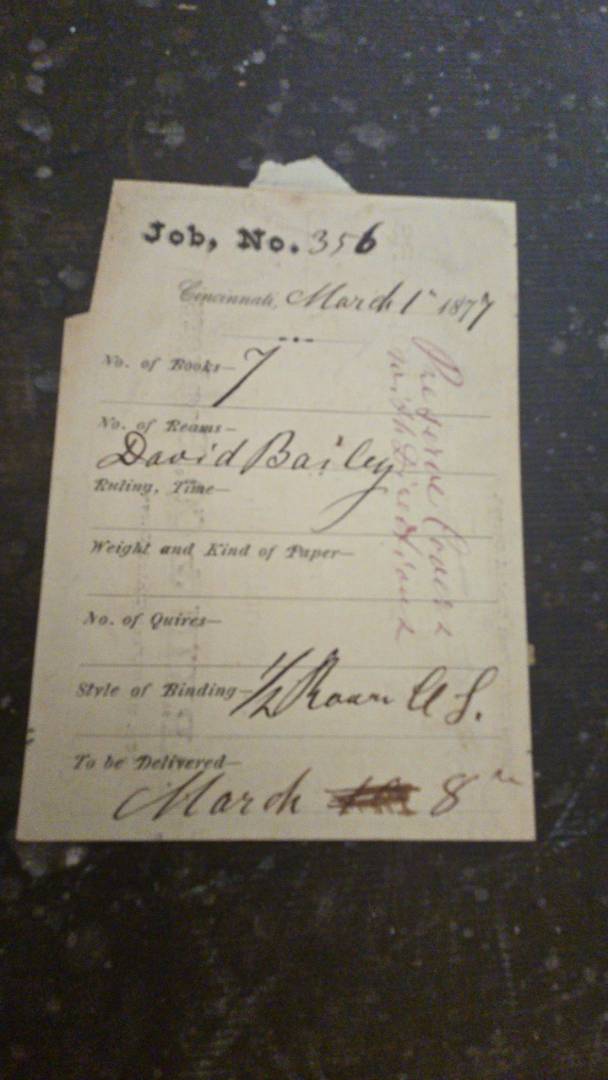 Job, No. 356
Cincinnati, March 1st 1877
No. of Books— 7
No. of Reams—
David Bailey
Ruling, Time—
Weight and Kind of Paper—
No. of Quires—
Style of Binding— 1/2 Roan
To be Delivered—
March 8
Preserve Covers
with Directions